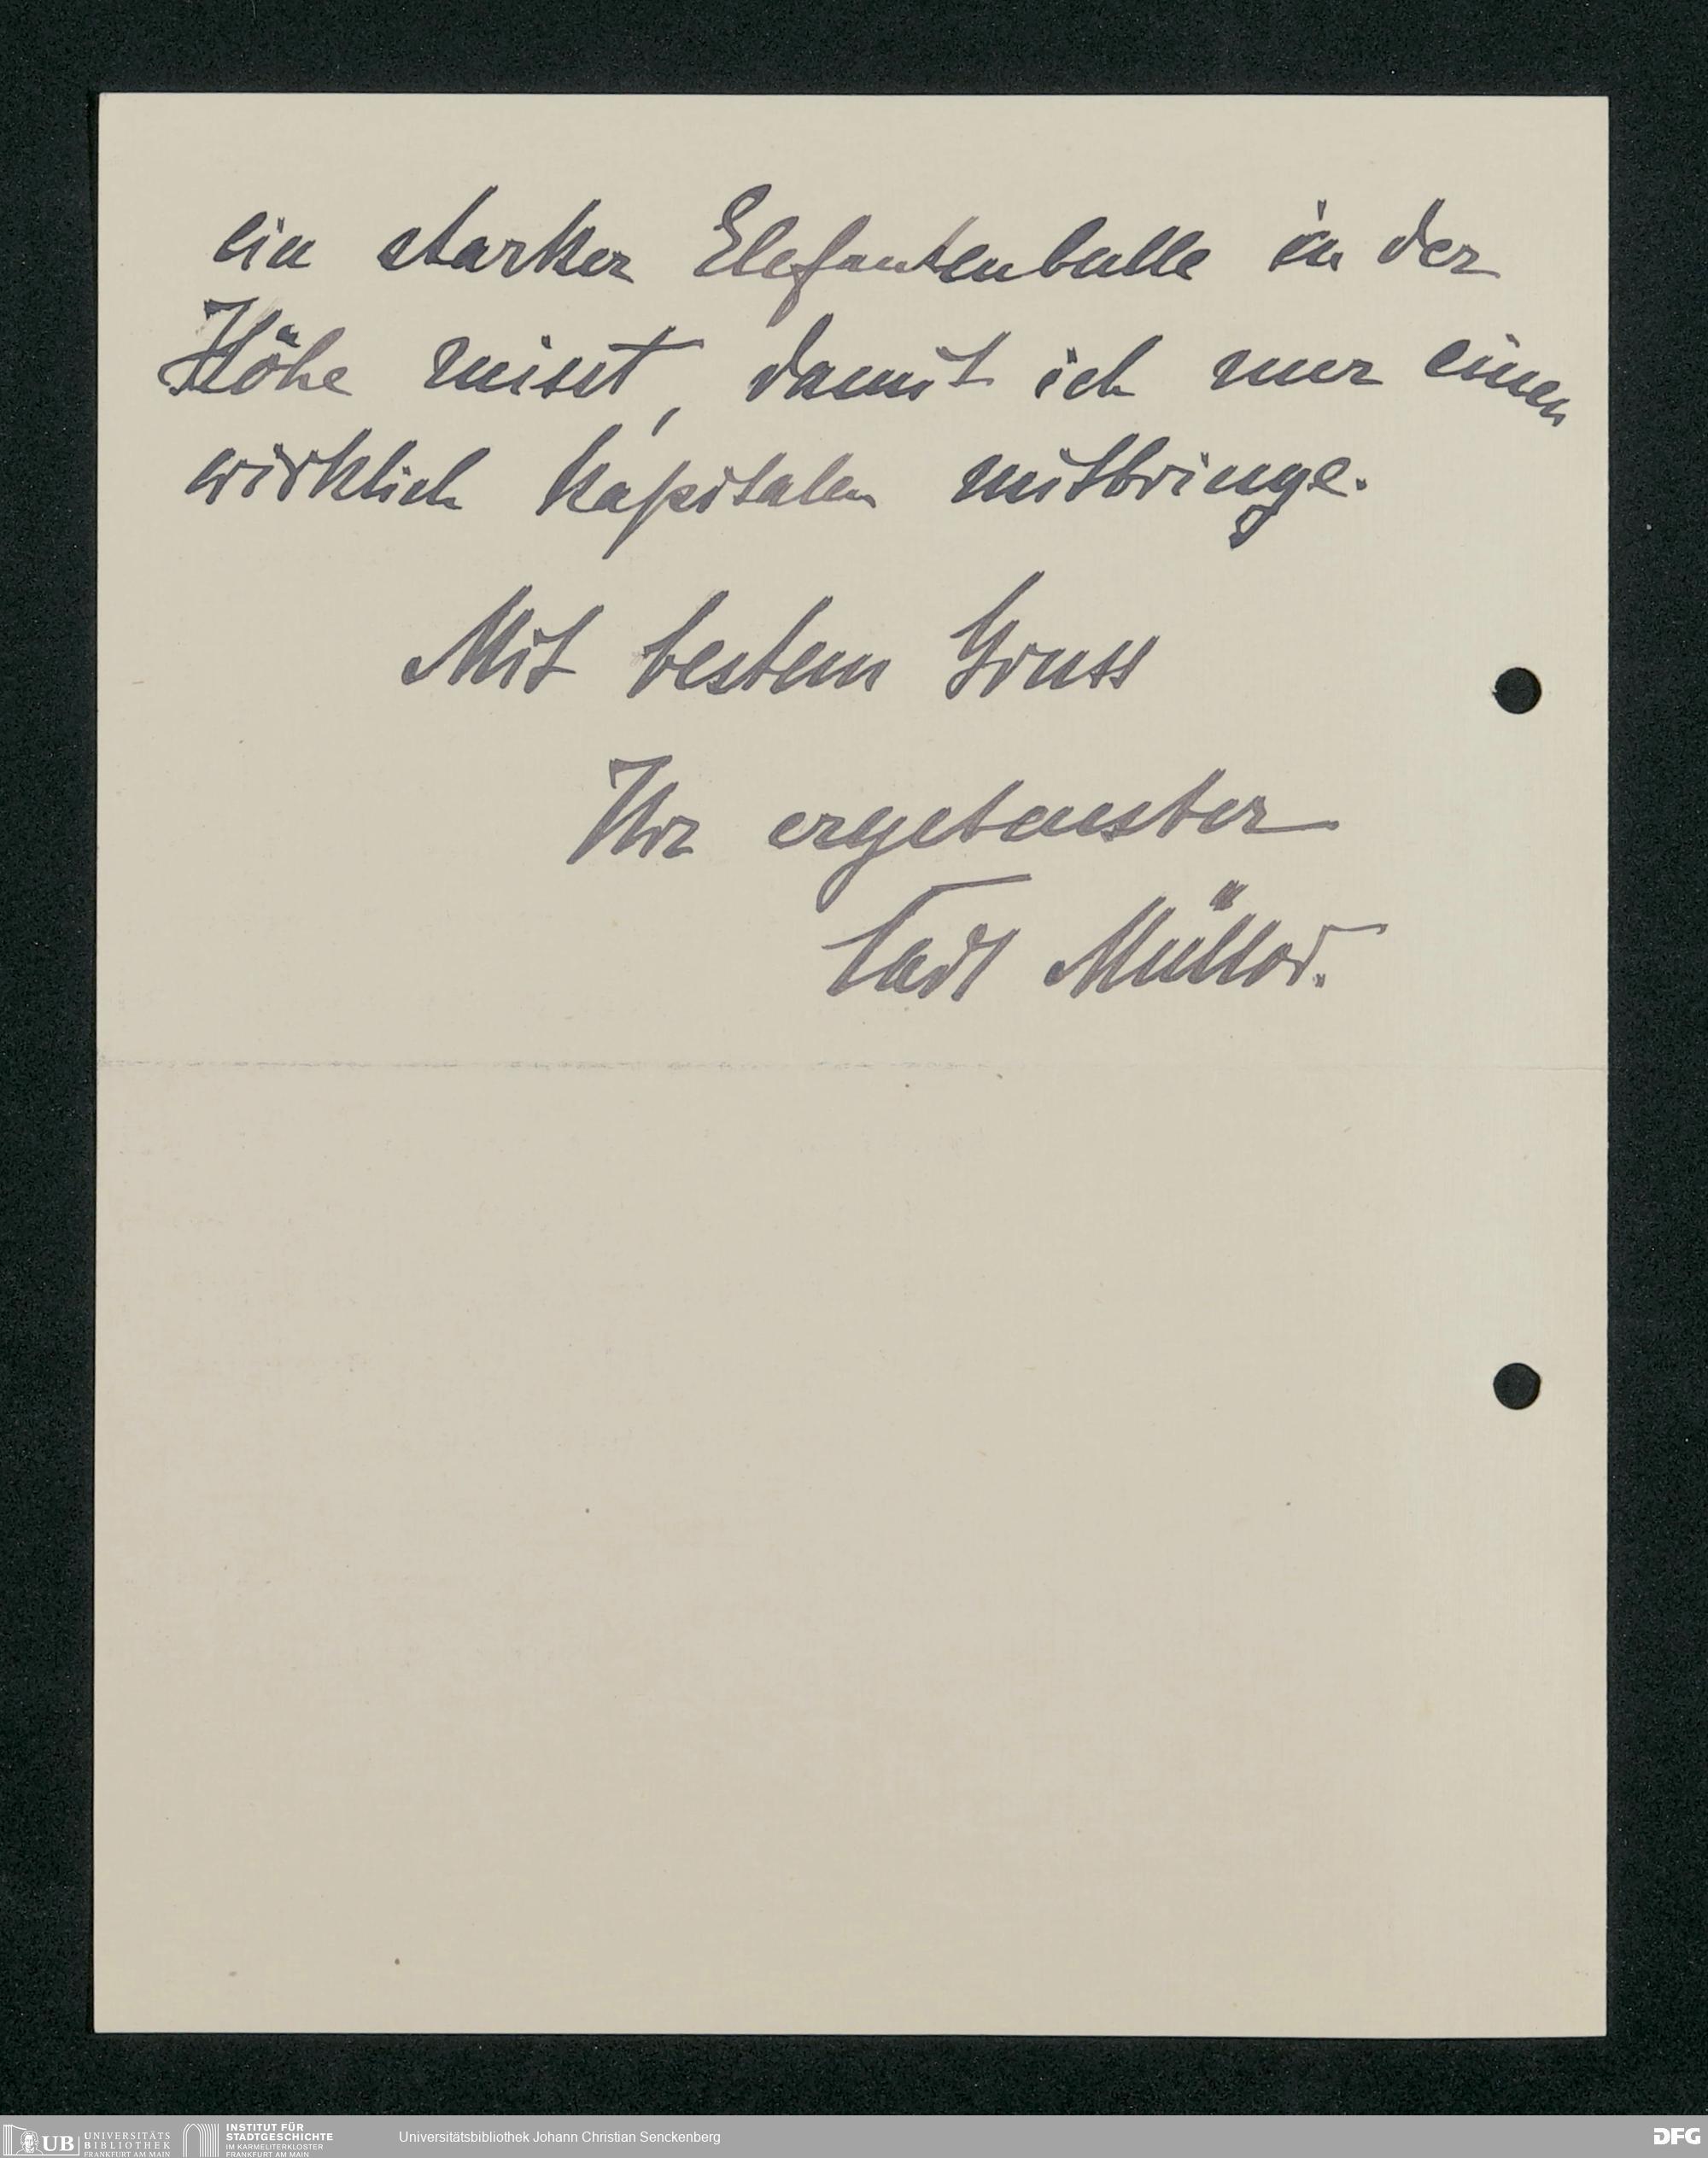 ein starker Elefantenbulle in der
Höhe misst, damit ich nur einen
wirklich kapitalen mitbringe.
Mit bestem Gruss
Ihr ergebenster
Carl Müller.
UB UNIVERSITÄTS
BIBLIOTHEK
FRANKFURT AM MAIN
INSTITUT FÜR
STADTGESCHICHTE
IM KARMELITERKLOSTER
FRANKFURT AM MAIN
Universitätsbibliothek Johann Christian Senckenberg
DFG